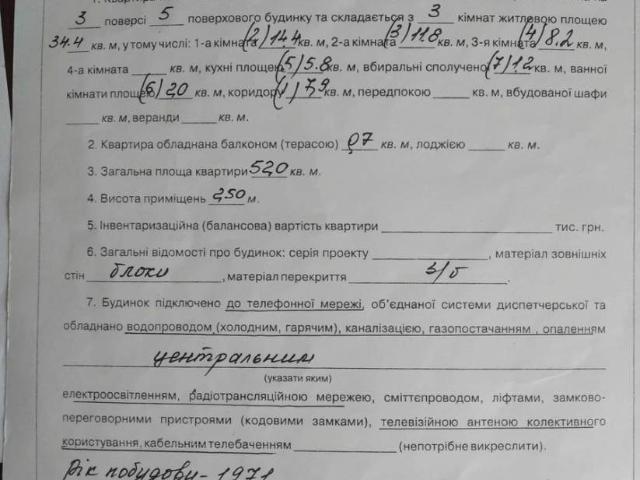 3 поверсі 5 поверхового будинку та складається з 3 кімнат житлевою площею
34.4 кв. м, у тому числі: 1-а кімната (2) 14.4 кв. м, 2-а кімната (3) 11.8 кв. м, 3-я кімната (4) 8.2 кв. м,
4-а кімната ____ кв. м, кухні площею (5) 5.8 кв. м, вбиральні сполучено (7) 1.2 кв. м, ванної
кімнати площею (6) 2,0 кв. м, коридору (1) 7.9 кв. м, передпокою ____ кв. м, вбудованої шафи
____ кв. м, веранди ____ кв. м.
2. Квартира обладнана балконом (терасою) 0,7 кв. м, лоджією ____ кв. м.
3. Загальна площа квартири 52,0 кв. м.
4. Висота приміщень 2,50 м.
5. Інвентаризаційна (балансова) вартість квартири ____ тис. грн.
6. Загальні відомості про будинок: серія проекту ____, матеріал зовнішніх
стін блоки, матеріал перекриття з/б.
7. Будинок підключено до телефонної мережі, об'єднаної системи диспетчерської та
обладнано водопроводом (холодним, гарячим), каналізацією, газопостачанням , опаленням
центральним
(указати яким)
електроосвітленням, радіотрансляційною мережею, сміттєпроводом, ліфтами, замково-
переговорними пристроями (кодовими замками), телевізійною антеною колективного
користування, кабельним телебаченням ____ (непотрібне викреслити).
Рік побудови - 1971